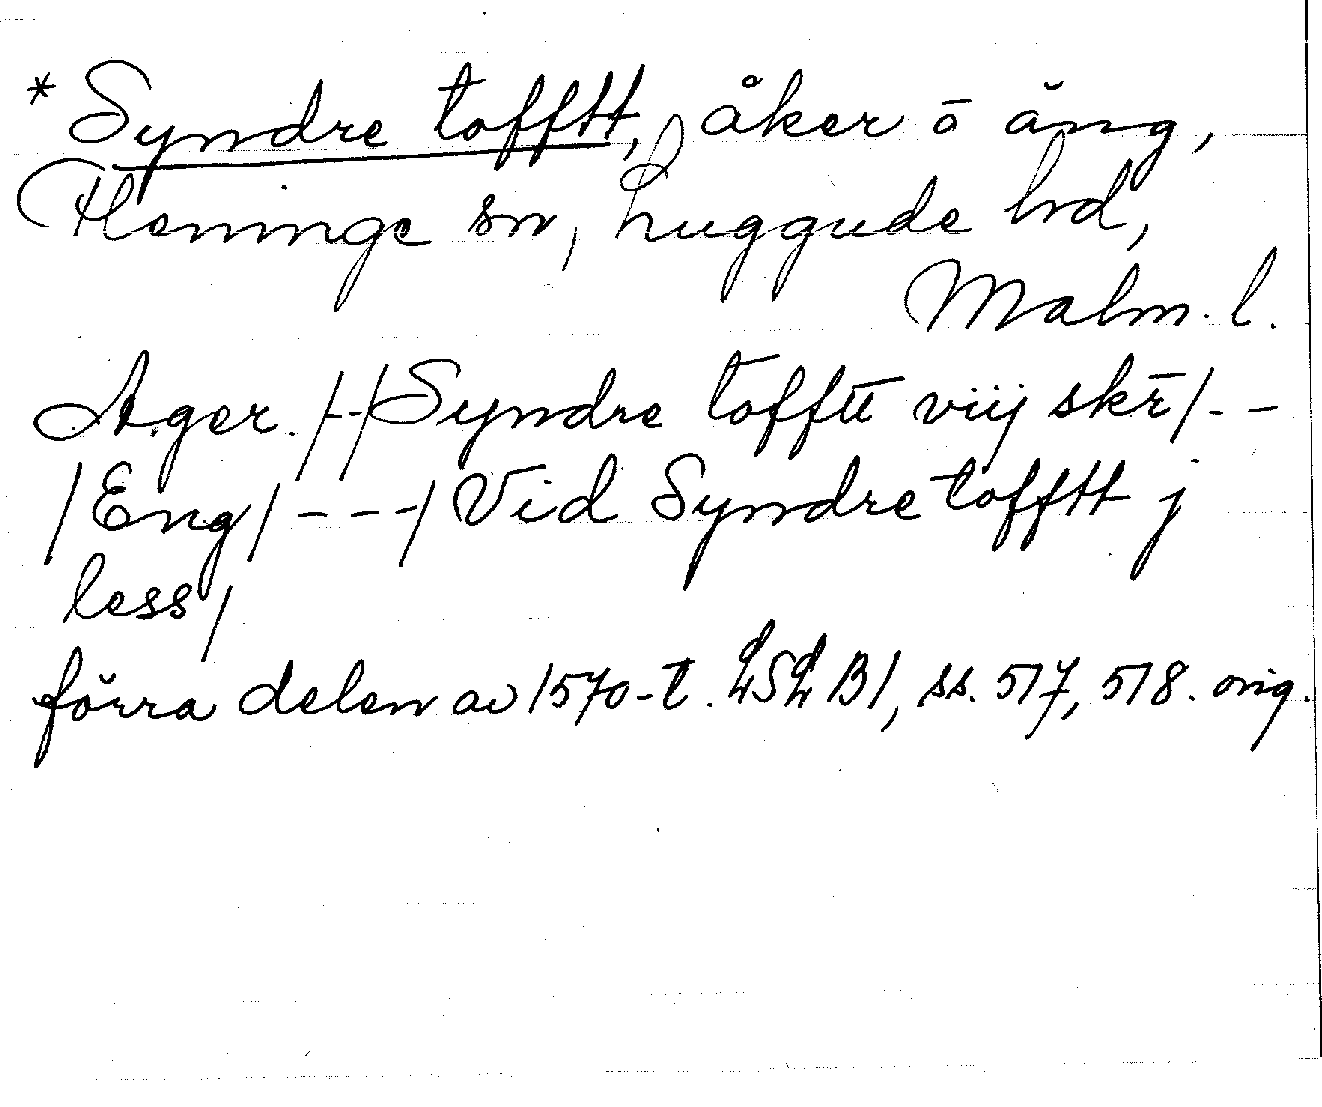 *Syndre tofftt, åker o äng,
Fleninge sn, Luggude hd,
Malm. l.
Ager. /--/ Syndre tofftt viij skr̄/--
/Eng/ ---/ Vid Syndre tofftt j
less/
förra delen av 1570-t. LSL B1, ss. 517, 518. orig.